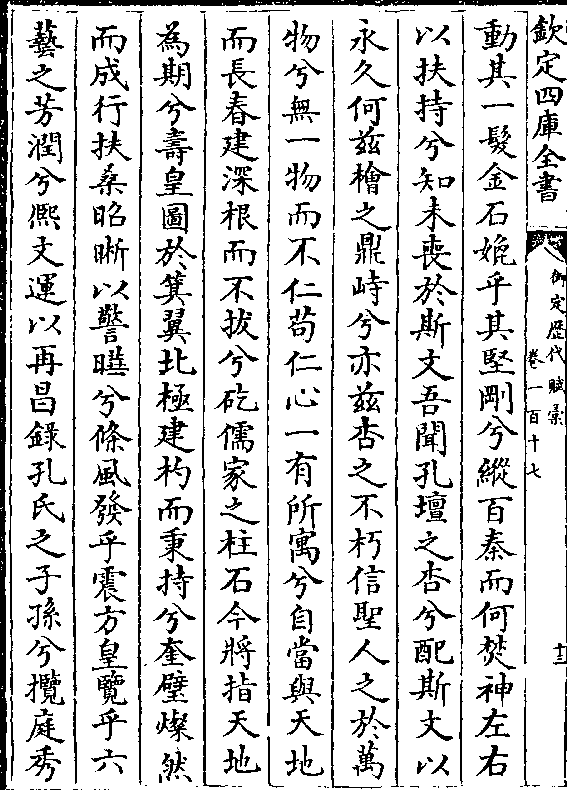 欽定四庫全書
御定歴代賦彙
卷一百十七
十三
動其一髮金石娩乎其堅剛兮縱百秦而何焚神左右
以扶持兮知未喪於斯文吾聞孔壇之杏兮配斯文以
永久何兹檜之鼎峙兮亦兹杏之不朽信聖人之於萬
物兮無一物而不仁苟仁心一有所寓兮自當與天地
而長春建深根而不拔兮矻儒家之柱石今將指天地
為期兮壽皇圖於箕翼北極建杓而秉持兮奎璧燦然
而成行扶桑昭晰以警曦兮條風發乎震方皇覽乎六
藝之芳潤兮熙文運以再昌錄孔氏之子孫兮攬庭秀